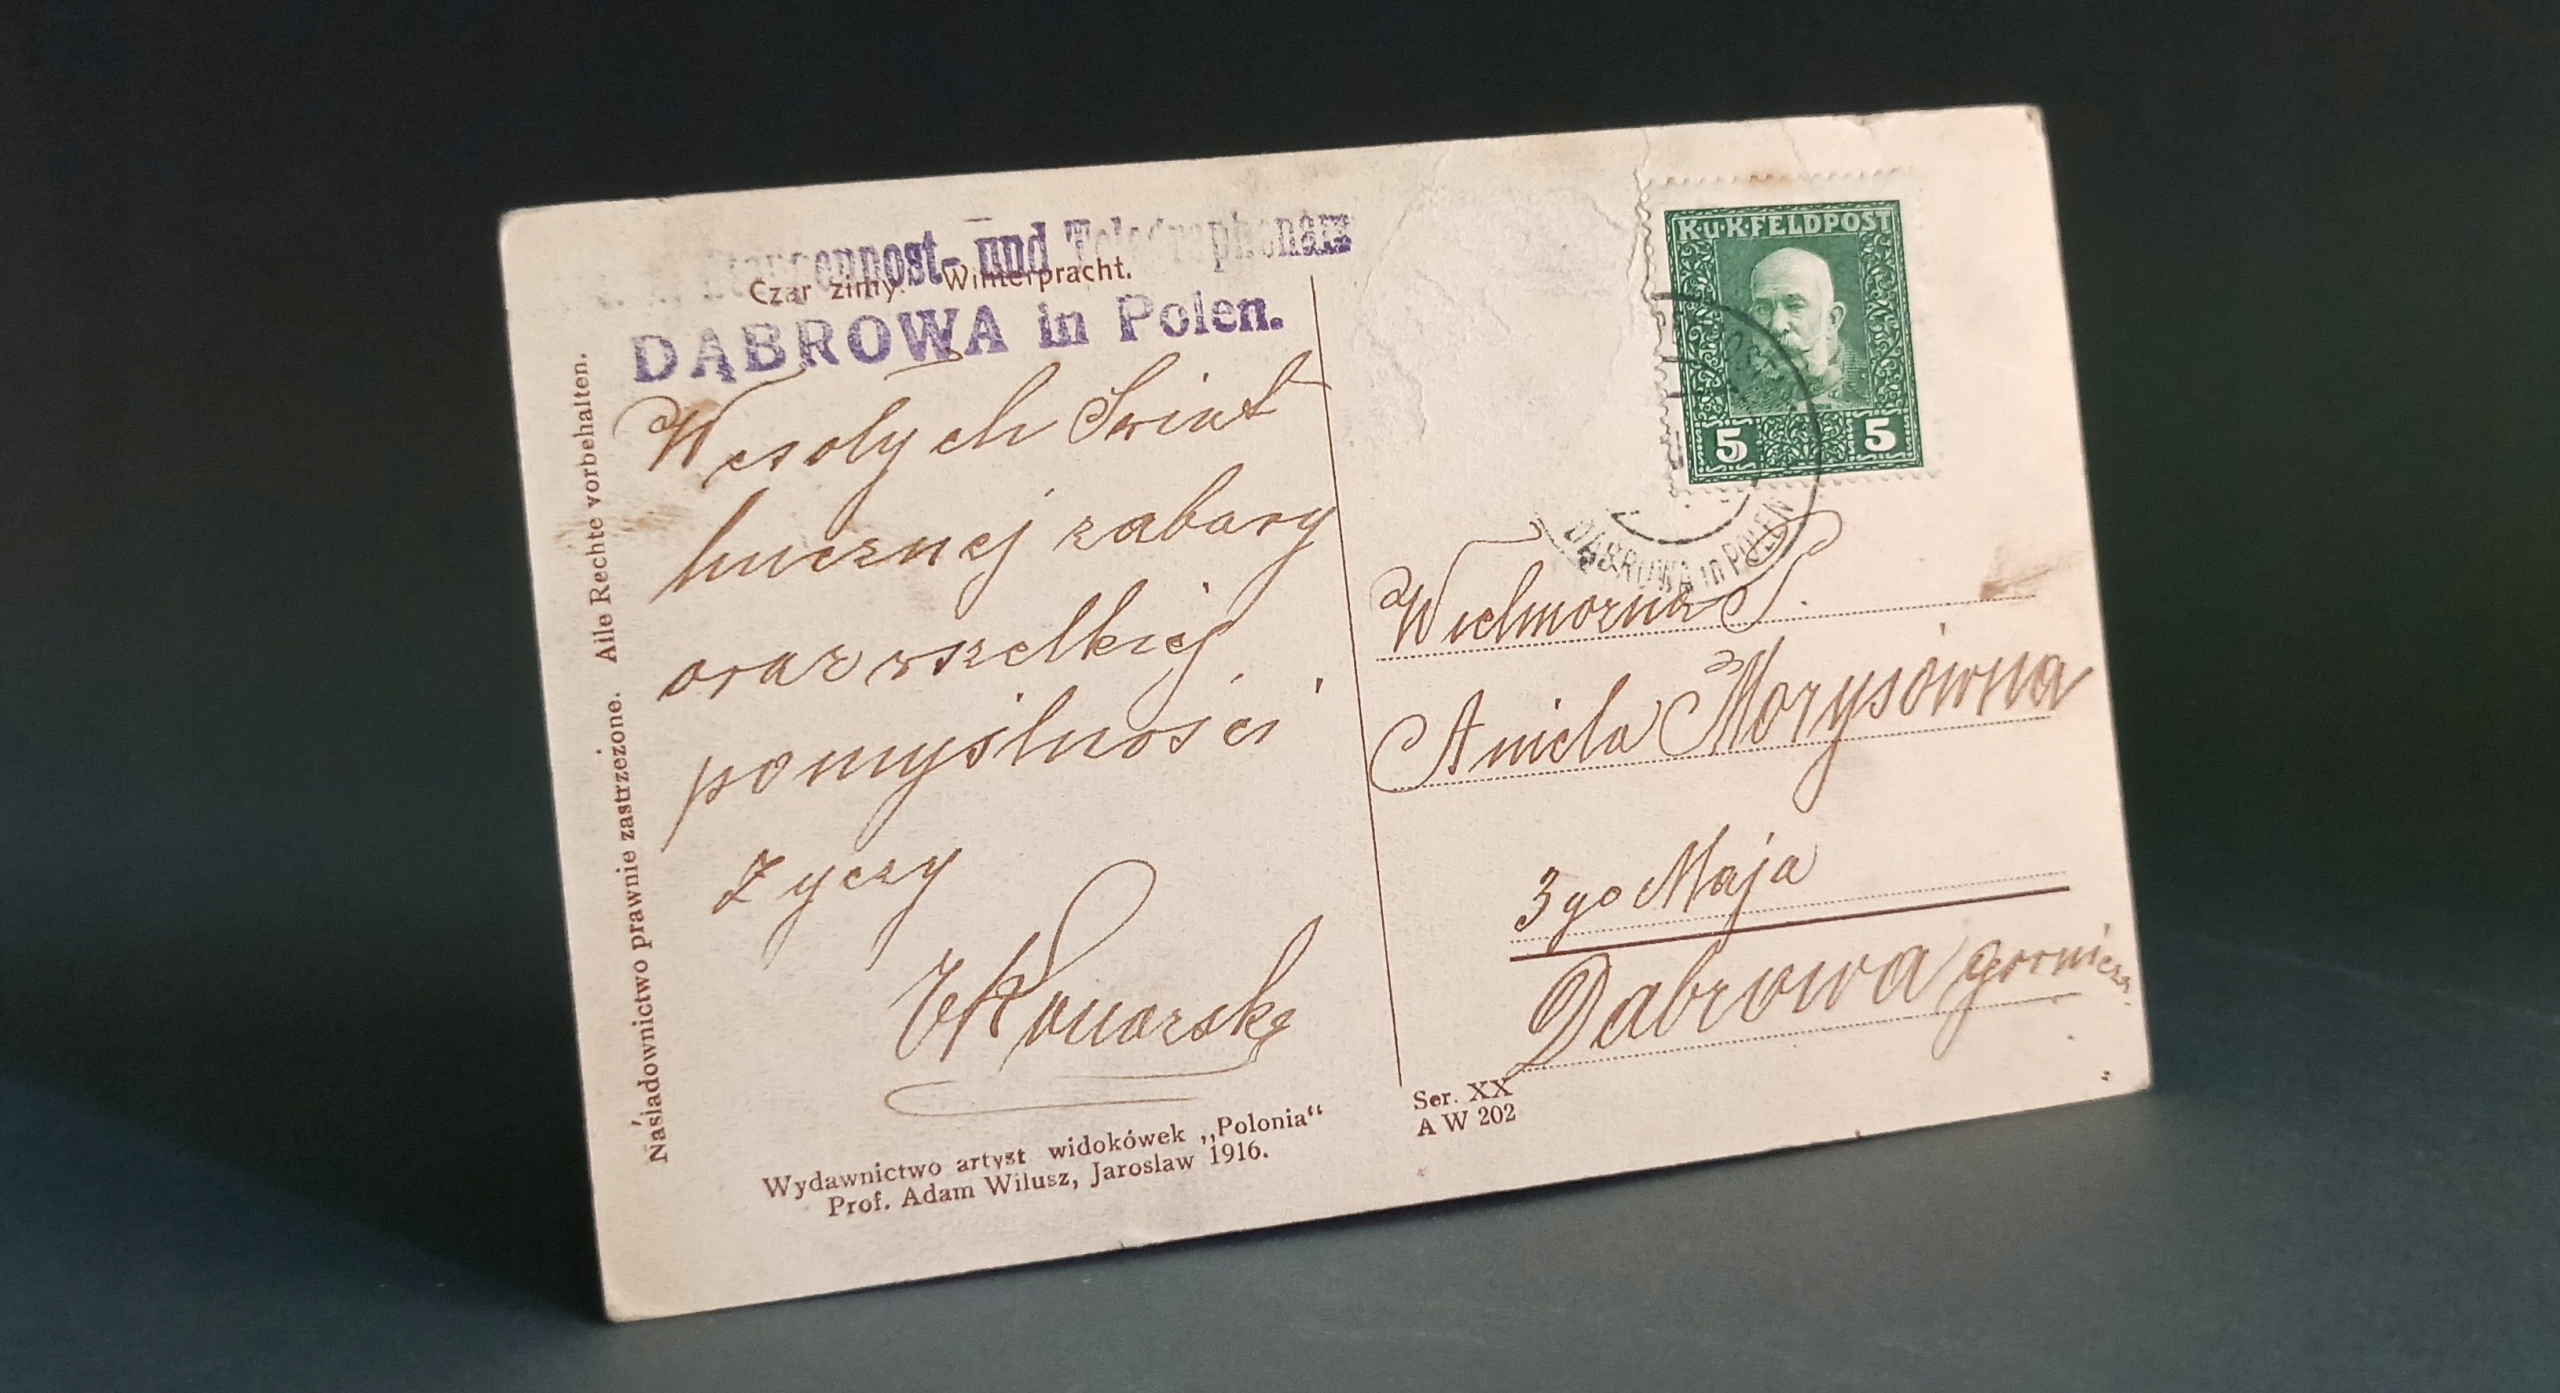 Etappenpost- und Telegraphenamt
Czar zimy. Winterpracht.
DĄBROWA in Polen.
Wesołych Świat
hucznej zabawy
oraz wszelkiej
pomyślności
życzy
Konarski
Wydawnictwo artyst widokówek „Polonia“
Prof. Adam Wilusz, Jaroslaw 1916.
Naśladownictwo prawnie zastrzeżone. Alle Rechte vorbehalten.
K.u.K. FELDPOST
5 5
DĄBROWA in POLEN
Wielmożna P.
Aniela Morysówna
3go Maja
Dabrowa gornicza
Ser. XX
A W 202